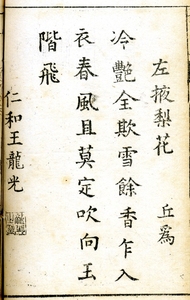 左掖梨花
丘為
冷艷全欺雪餘香乍入
衣春風且莫定吹向玉
階飛
仁和王龍光